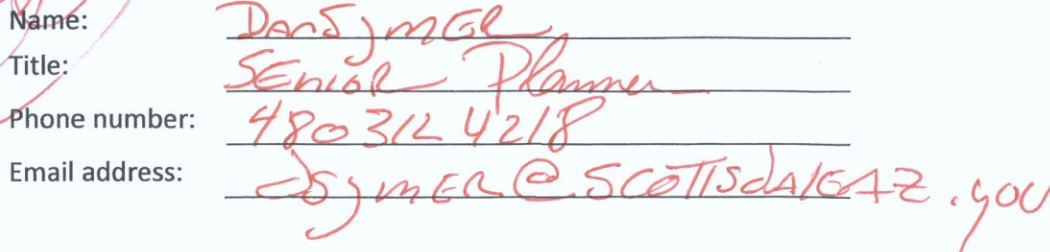 Name: Dan Symer
Title: Senior Planner
Phone number: 480 312 4218
Email address: dsymer@scottsdaleaz.gov